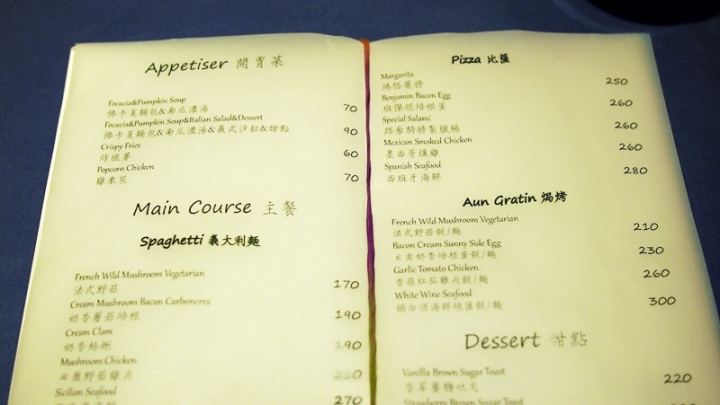 Appetiser 開胃菜
Focacia&Pumpkin Soup
佛卡夏麵包&南瓜濃湯 70
Focacia&Pumpkin Soup&Italian Salad&Dessert
佛卡夏麵包&南瓜濃湯&義式沙拉&甜點 90
Crispy Fries
炸脆薯 60
Popcorn Chicken
雞米花 70
Main Course 主餐
Spaghetti 義大利麵
French Wild Mushroom Vegetarian
法式野菇 170
Cream Mushroom Bacon Carbonerra
奶香蘑菇培根 190
Cream Clam
奶香蛤蜊 190
Mushroom Chicken
野菇雞肉 220
Sicilian Seafood
270
Pizza 比薩
Margarita
瑪格麗特 250
Benjamin Bacon Egg
班傑明培根蛋 260
Special Salami
路易特製臘腸 260
Mexican Smoked Chicken
墨西哥燻雞 260
Spanish Seafood
西班牙海鮮 280
Aun Gratin 焗烤
French Wild Mushroom Vegetarian
法式野菇飯/麵 210
Bacon Cream Sunny Side Egg
日出奶香培根蛋飯/麵 230
Garlic Tomato Chicken
香蒜紅茄雞肉飯/麵 260
White Wine Seafood
白酒海鮮燉蛋飯/麵 300
Dessert 甜點
Vanilla Brown Sugar Toast
香草蜜糖吐司 220
Strawberry Brown Sugar Toast